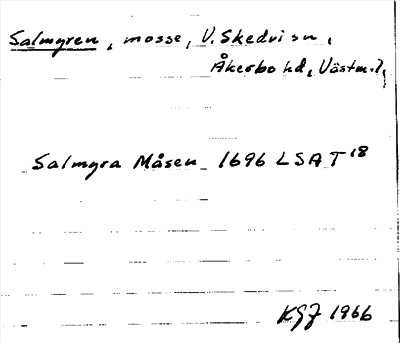 Salmyren, mosse, V. Skedvi sn,
Åkerbo hd, Västm. l,
Salmyra Måsen 1696 LSA T 18
KGJ 1966